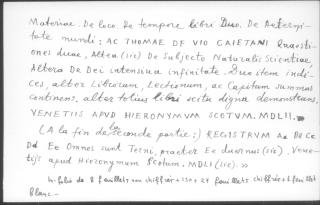 Materiae. De loco. De tempore libri Duo. De Aeterni-
tate mundi; AC THOMAE DE VIO CAIETANI Quaesti-
ones duae, Altera (sic) De Subjecto Naturalis Scientiae,
Altera De Dei intensiva infinitate. Duo item indi-
ces, alter Librorum, Lectionum, ac Capitum summas
continens, alter totius libri scitu digna demonstrans,
VENETIIS APUD HIERONYMUM SCOTUM. MDLII.
(A la fin de la seconde partie:) REGISTRUM Aa Bb Cc
Dd Ee Omnes sunt Terni, praeter Ee duernus (sic), Vene-
tijs apud Hieronymum Scotum. MDLI (sic). »
in-folio de 8 feuillets non chiffrés + 150 + 27 feuillets chiffrés + 1 feuillet
blanc.-